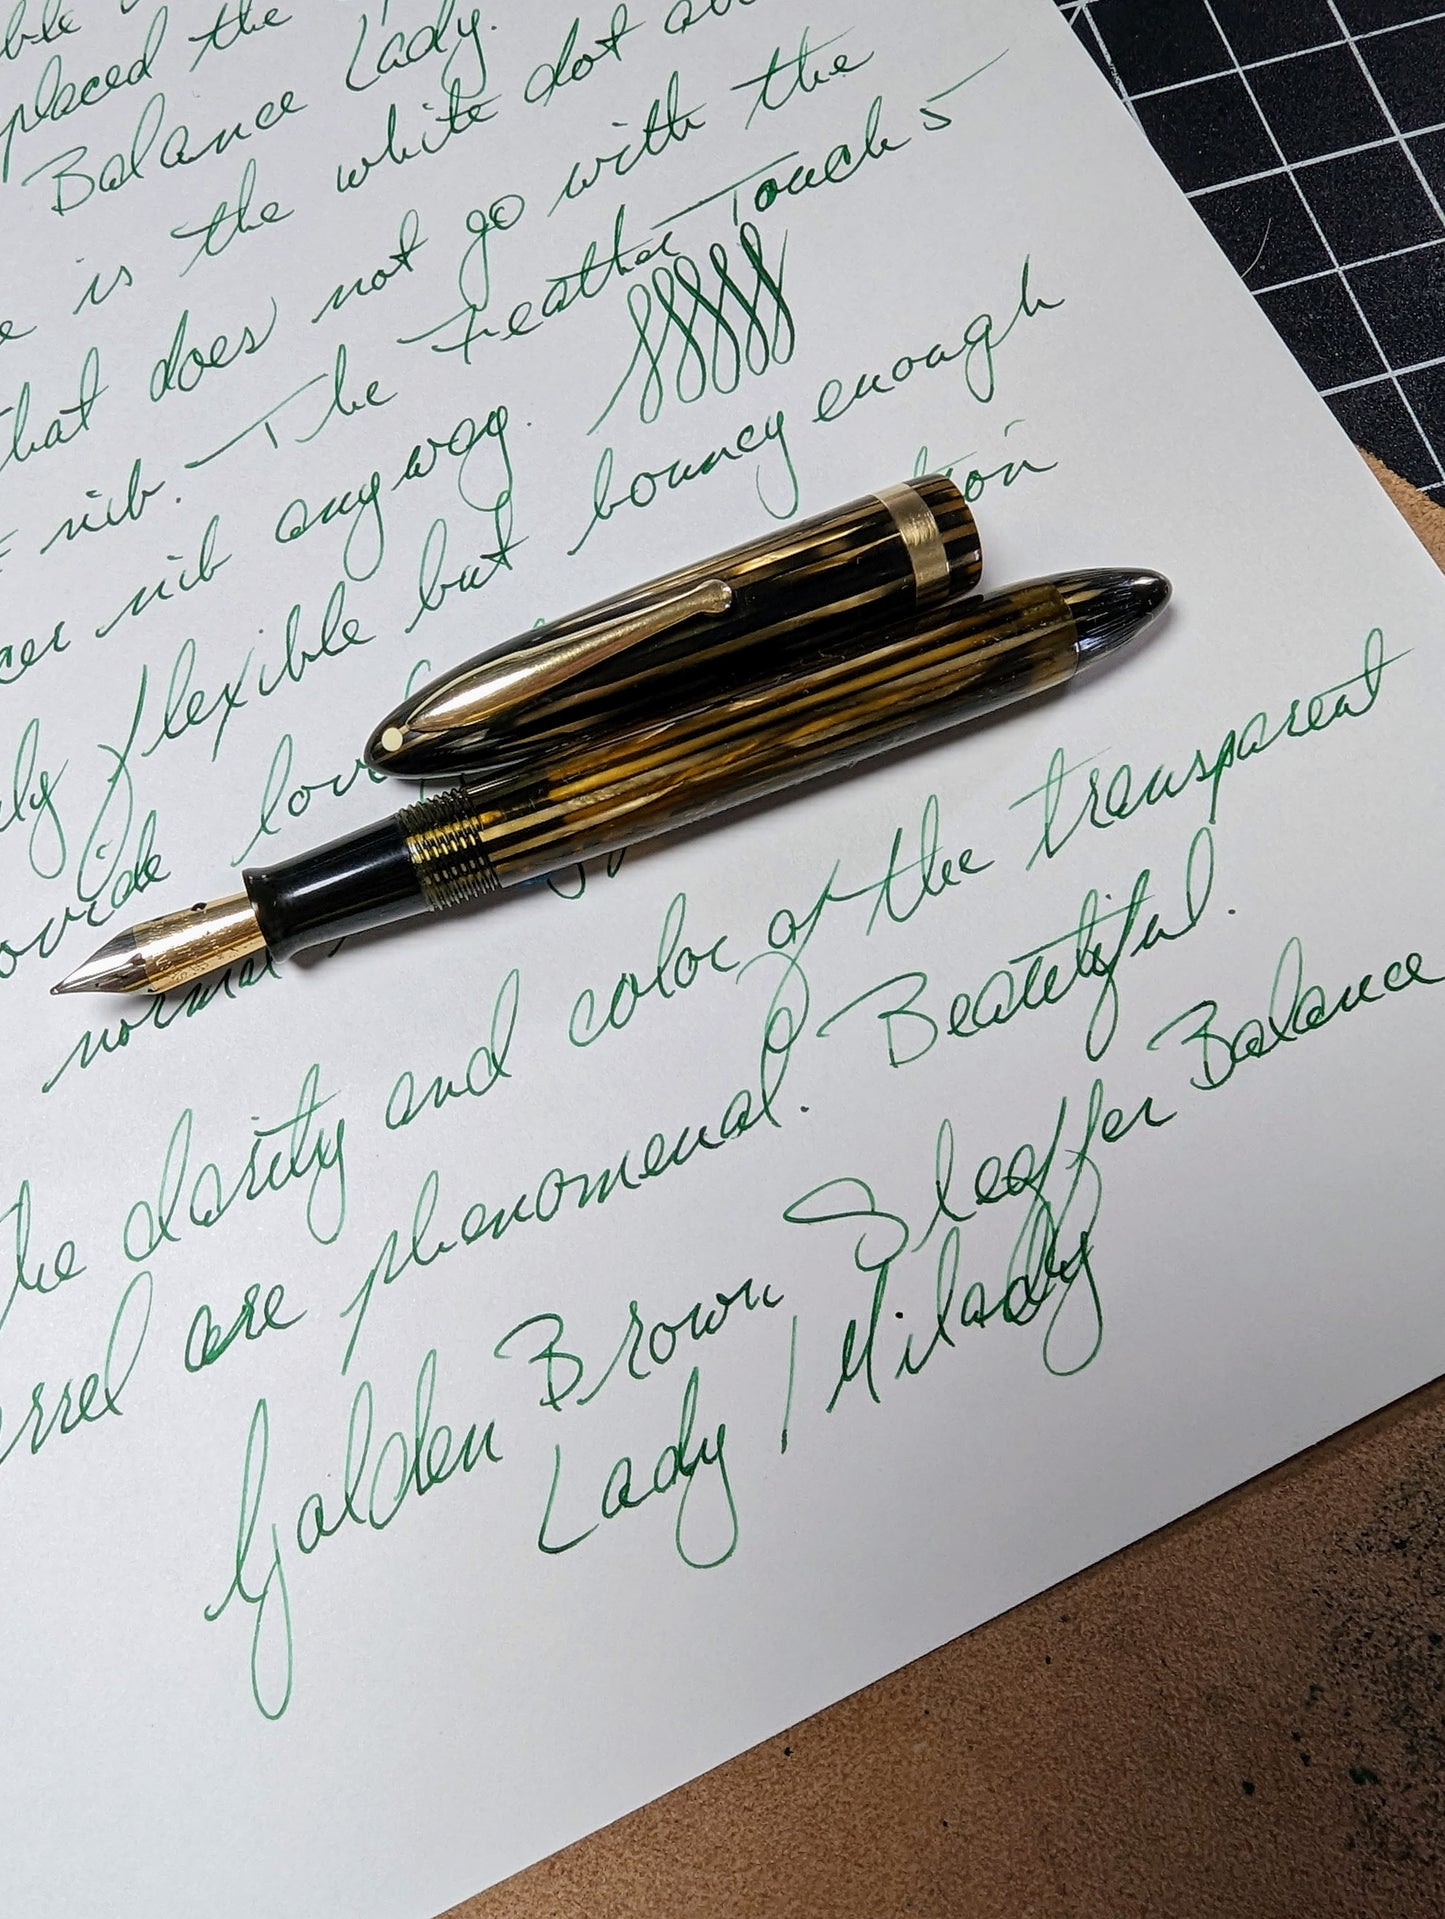 placed the
Balance Lady.
is the white dot
that does not go with the
nib. The Feather Touch 5
nib anyway.
flexible but bouncy enough
ovide lov tion
normal
The clarity and color of the transparent
rrel are phenomenal. Beautiful.
Golden Brown Sheaffer Balance
Lady / Milady